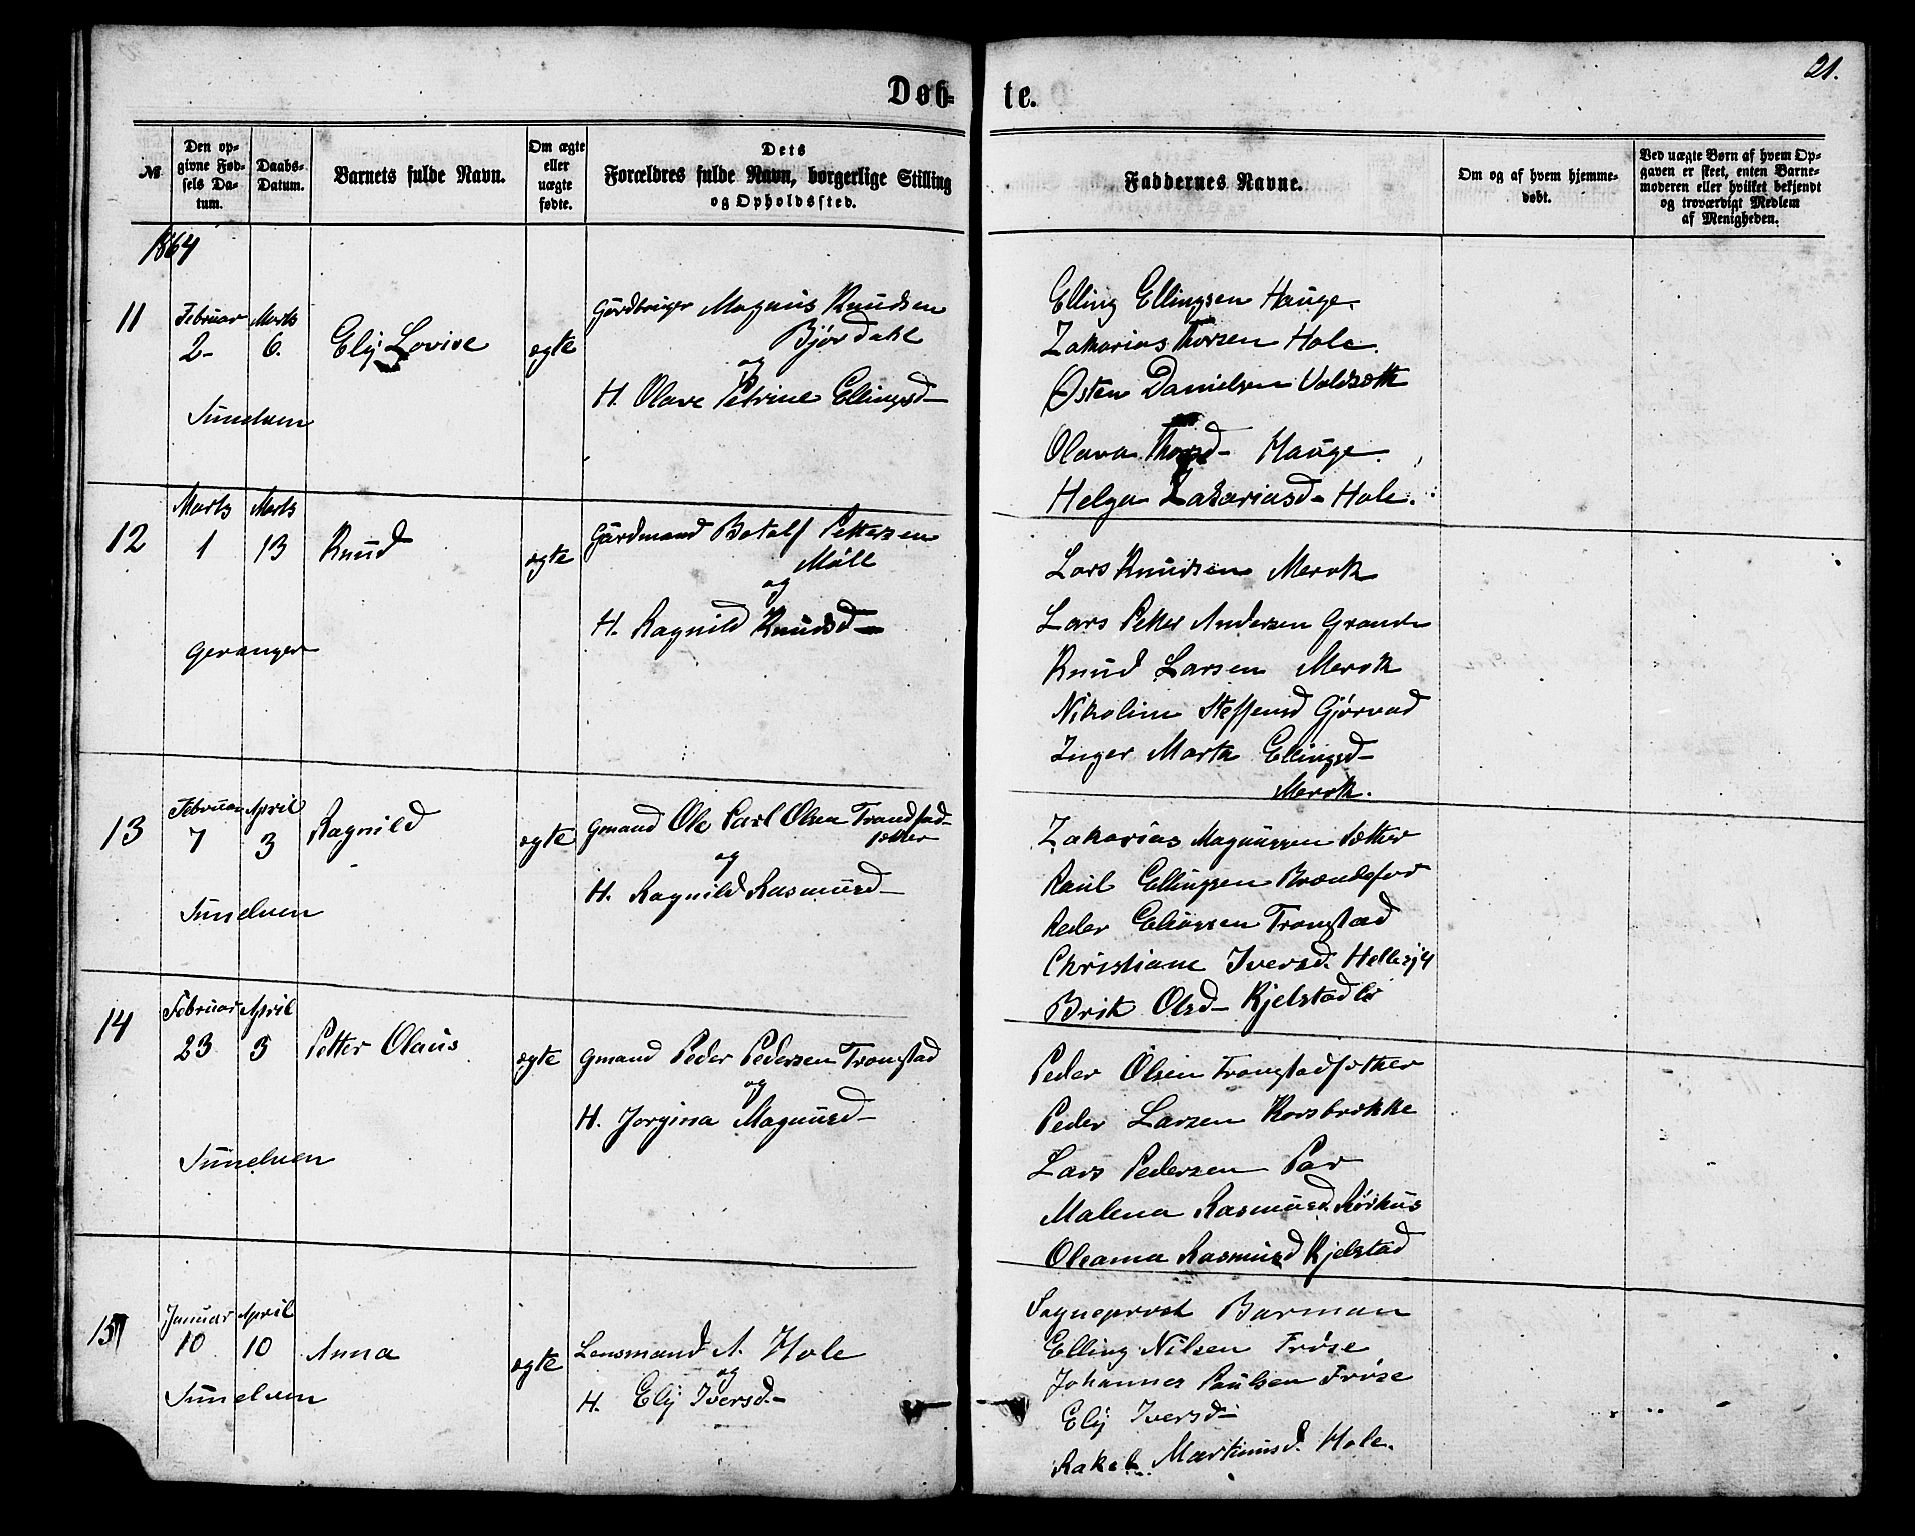 21.
Døb-te.
№
Den opgivne Fødsels Datum.
Daabs-Datum.
Barnets fulde Navn.
Om ægte eller uægte fødte.
Dets Forældres fulde Navn, borgerlige Stilling og Opholdssted.
Faddernes Navne.
Om og af hvem hjemmedøbt.
Ved uægte Børn af hvem Opgaven er skeet, enten Barnemoderen eller hvilket bekjendt og troværdigt Medlem af Menigheden.
1864
11
Februar 2-
Marts 6.
Elij Lovise
ægte
Gårdbruger Magnus Knudsen
Bjørdahl
og
H. Olave Petrine Ellingsd-
Sunelven
Elling Ellingsen Hauge.
Zakarias Thorsen Hole.
Østen Danielsen
Olava Thorsd- Hauge.
Helga Zakariasd- Hole.
12
Marts 1
Marts 13
Knud
ægte
Gårdmand Botolf Pettersen
Møll
og
H. Ragnild Knudsd-
Geranger
Lars Knudsen Merok
Lars Petter Andersen Grande
Knud Larsen Merok
Nikoline Steffensd Gjørvad
Inger Marta Ellingsd-
Merok.
13
Februar 7
April 3
Ragnild
ægte
Gmand Ole Carl Olsen Trandstad-
sætter
og
H. Ragnild Rasmusd-
Sunelven
Zakarias Magnussen Sætter
Paul Ellingsen
Peder Eliassen Tronstad
Christiane Iversd. Hellesylt
Brit Olsd- Kjelstadli
14
Februar 23
April 3
Petter Olaus
ægte
Gmand Peder Pedersen Tronstad
og
H. Jorgina Magnusd-
Sunelven
Peder Olsen Tronstadsæther
Peder Larsen Korsbrekke
Lars Pedersen
Malena Rasmusd.
Oleana Rasmusd Kjelstad
15
Januar 10
April 10
Anna
ægte
Lensmand A. Hole
og
H. Elij Iversd-
Sunelven
Sogneprest Barman
Elling Nilsen Frøse
Johannes Paulsen Frøse
Elij Iversd-
Rakel Martinusd. Hole.